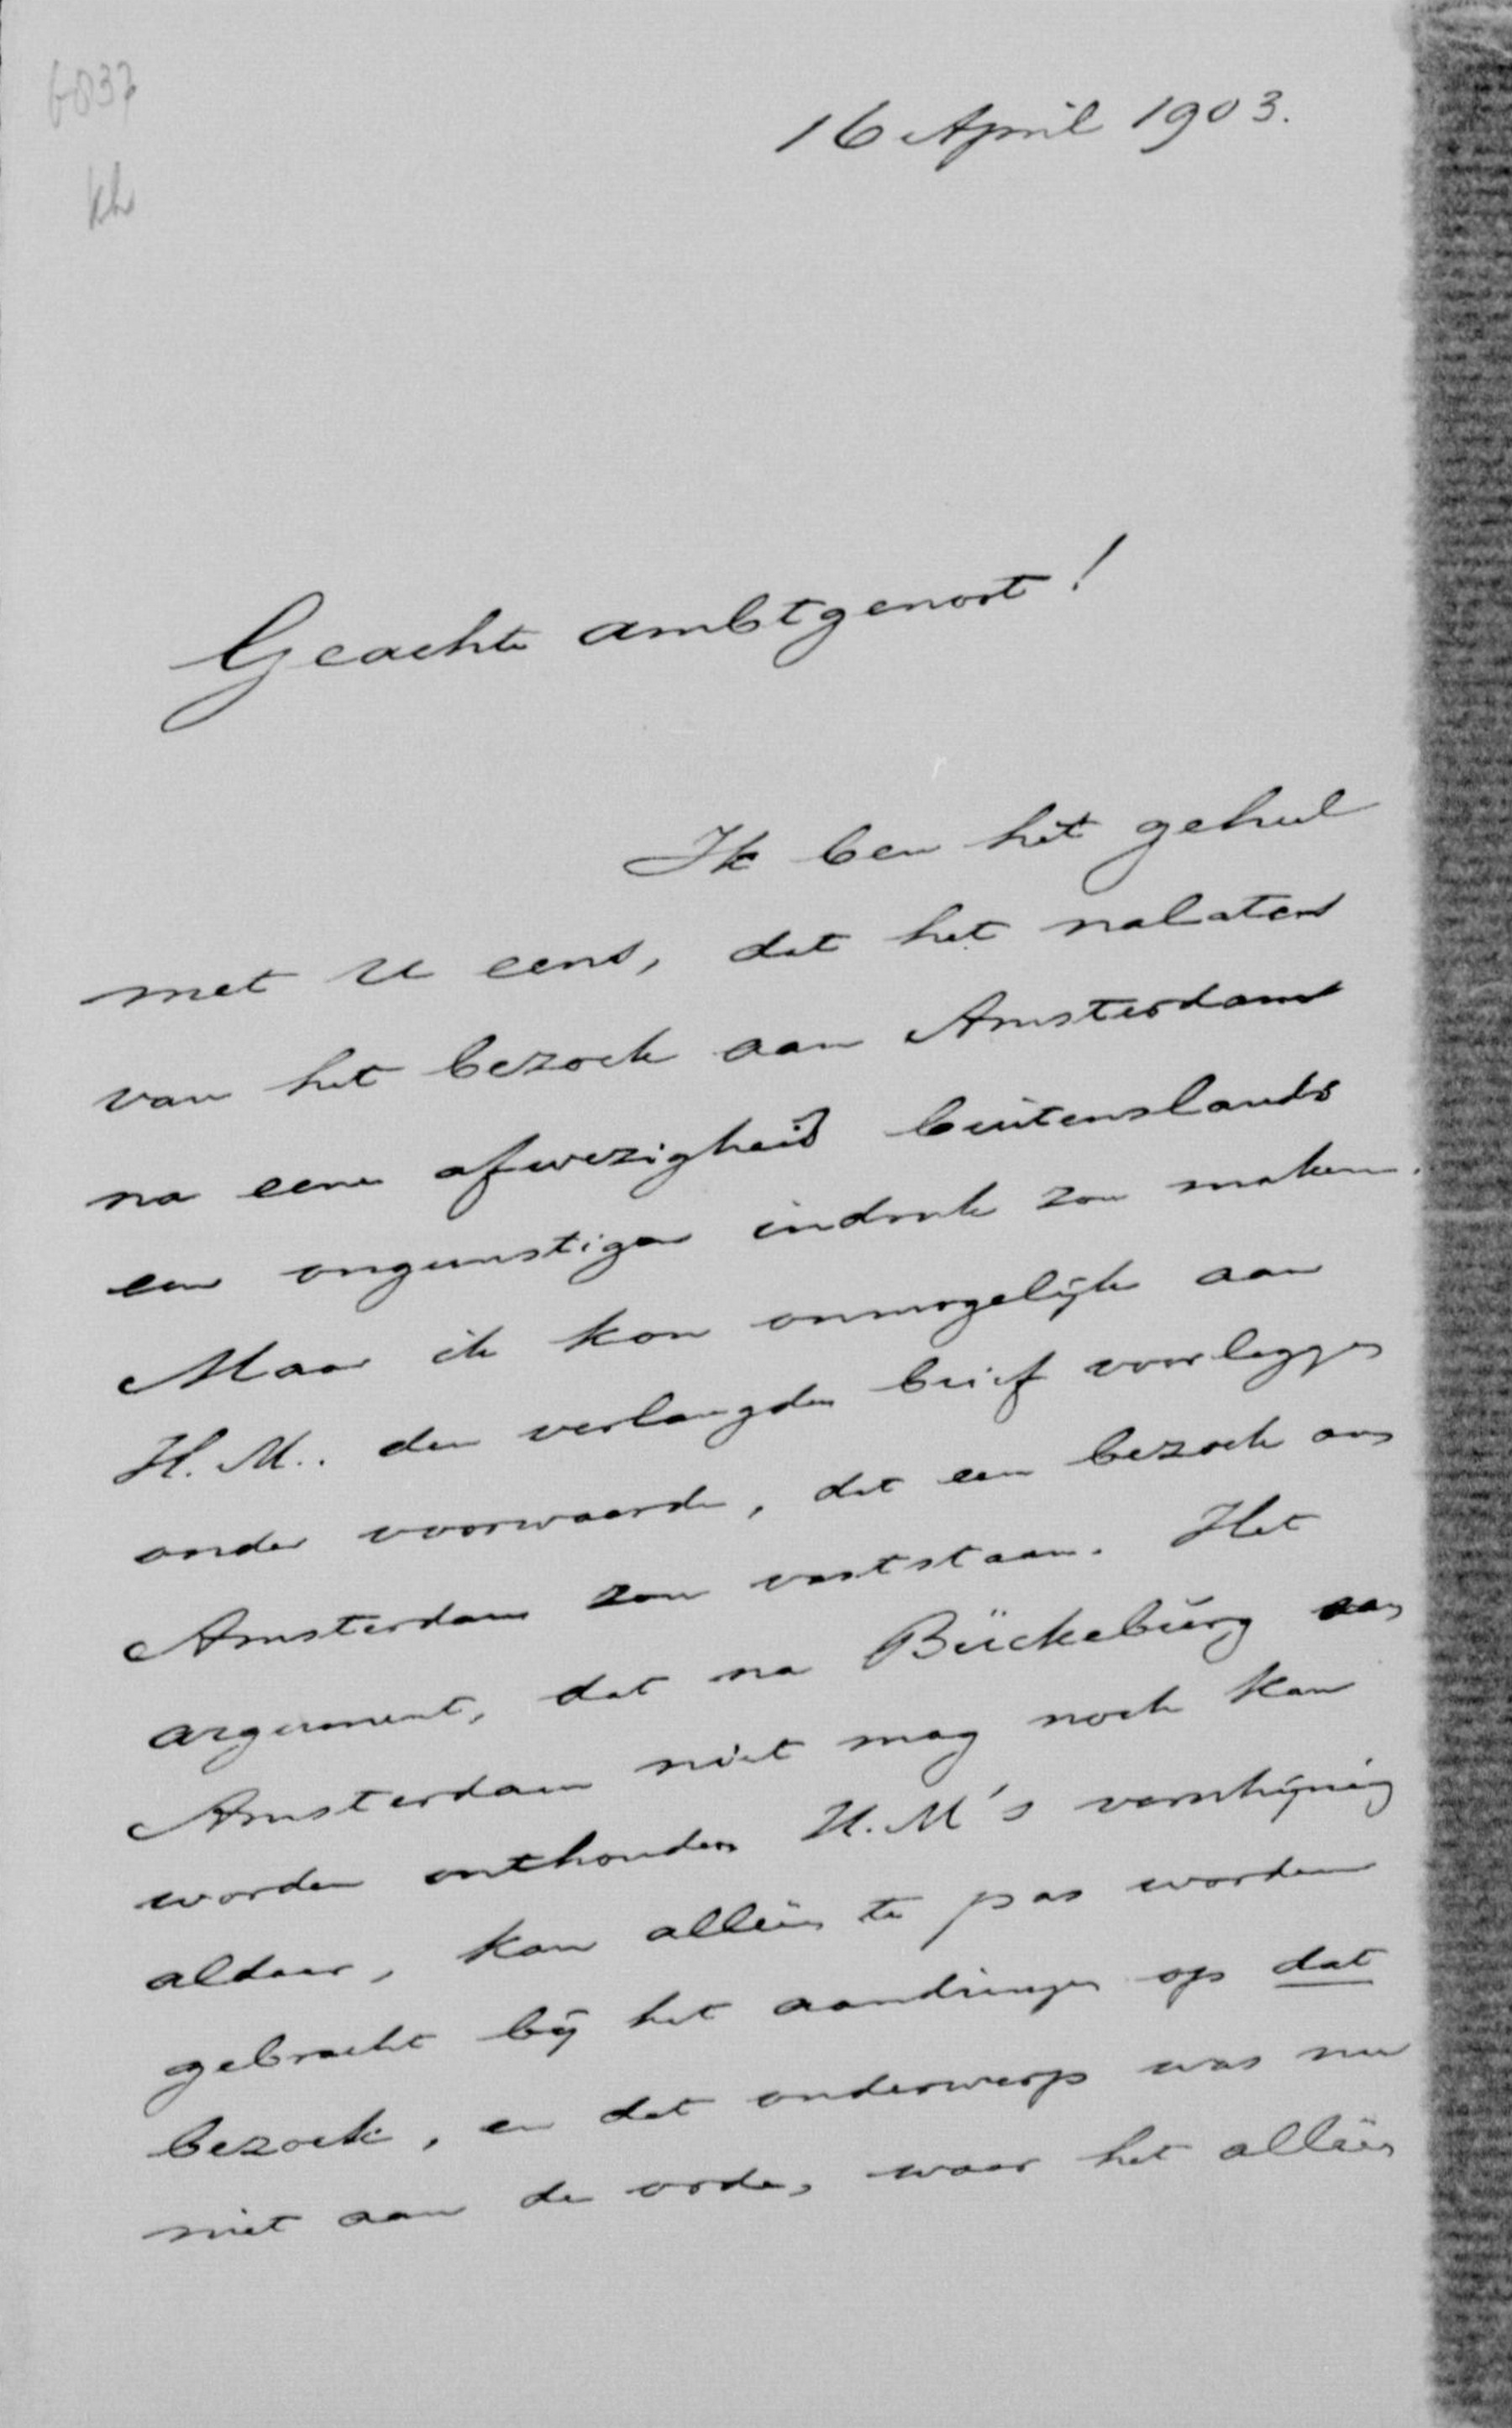 6037
kh
16 April 1903.
Geachte ambtgenoot!
Ik ben het geheel
met U eens, dat het nalaten
van het bezoek aan Amsterdam
na eene afwezigheid buitenslands
een ongunstigen indruk zou maken.
Maar ik kon onmogelijk aan
H.M. den verlangden brief voorleggen
onder voorwaarde, dat een bezoek aan
Amsterdam zou vaststaan. Het
argument, dat na Bückeburg aan
Amsterdam niet mag noch kan
worden onthouden H.M's verschijning
aldaar, kan alléén te pas worden
gebracht bij het aandringen op dat
bezoek, en dat onderwerp was nu
niet aan de orde, waar het alléén